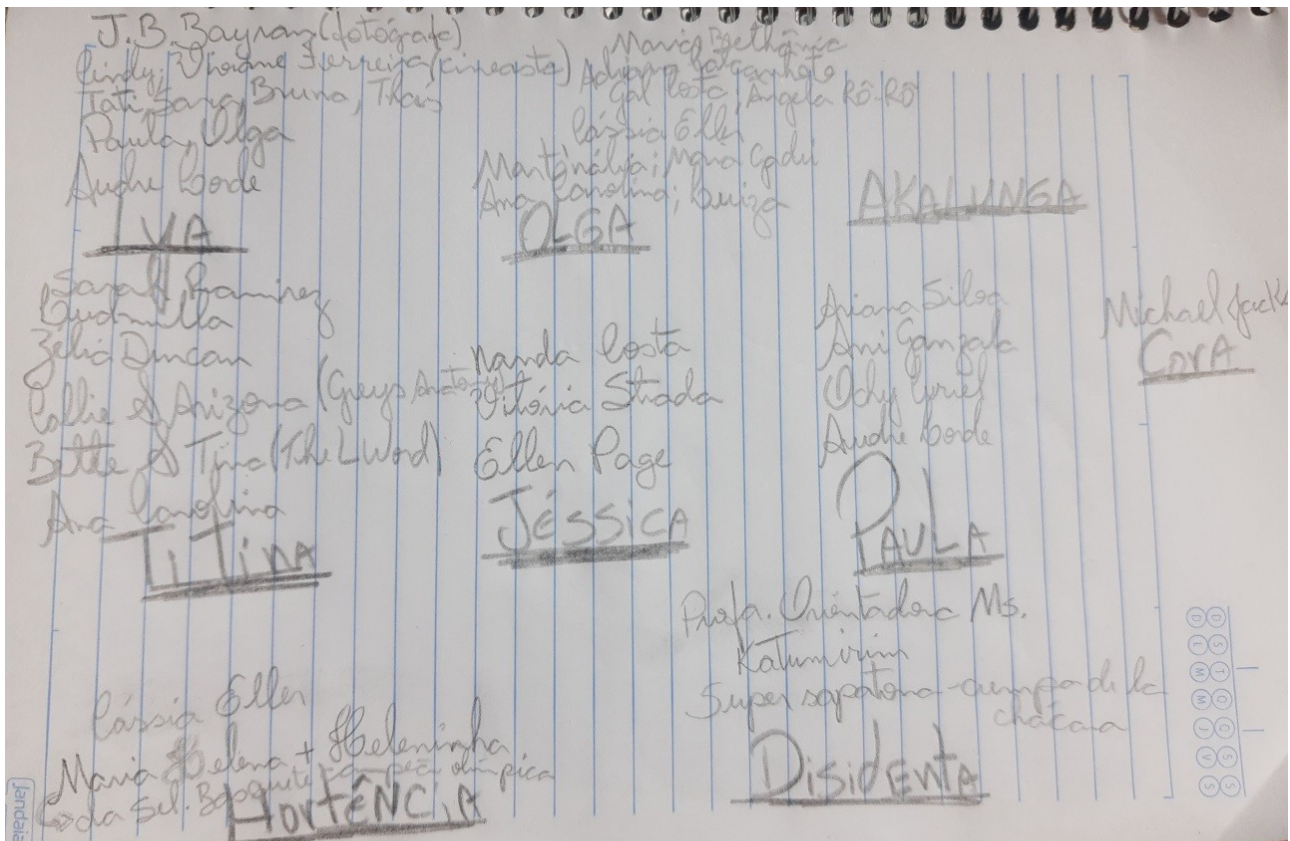 J.B. Bayran (fotógrafa)
Cindy; Viviane Ferreira (cineasta)
Tati, Sara, Bruna, Thaís
Paula, Olga
Audre Lorde
IVA
Maria Bethânia
Adriana Calcanhoto
Gal Costa; Angela Rô-Rô
Cássia Eller
Martinália; Mona
Ana Carolina; Luiza
OLGA
AKALUNGA
Sarah Ramirez
Ludmilla
Zélia Duncan
Callie & Arizona (Greys Anatomy)
Bette & Tina (The L Word)
Ana Carolina
TiTiNA
Nanda Costa
Vitória Strada
Ellen Page
JÉSSiCA
Ariana Silva
Ani Ganzala
Ochy Curiel
Audre Lorde
PAULA
Michael Jack
CorA
Cássia Eller
Maria Helena + Heleninha
da Sel. Basquete campeã olímpica
HortêNCiA
Profa. Orientadora Ms.
Katumirim
Super sapatona - de la
chácara
DisidENtA
D S T Q Q S S
D L M M J V S
Jandaia